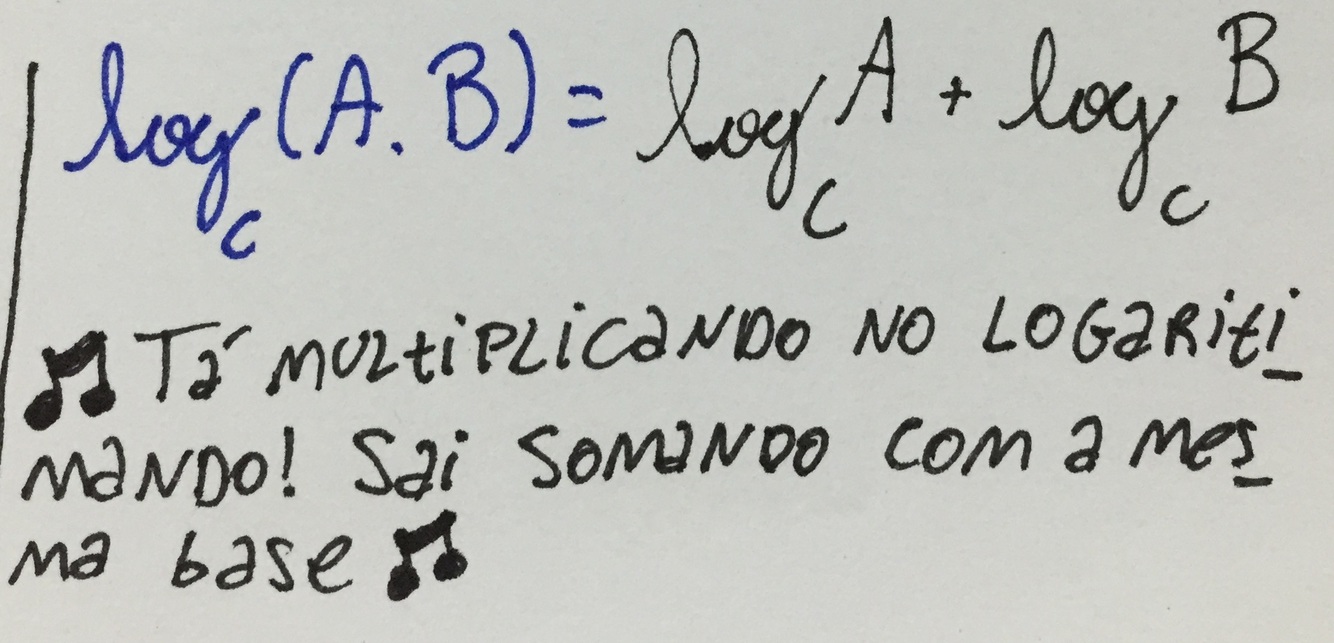 log_c (A.B) = log_c A + log_c B
♫ Tá multiplicando no logariti
mando! Sai somando com a mes
ma base ♫